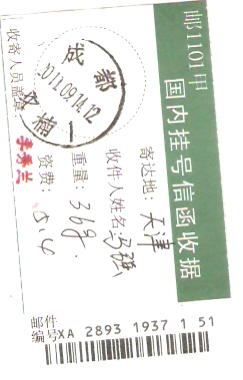 邮1101甲
国内挂号信函收据
寄达地：天津
收件人姓名
重量：36g.
资费：5.4
收寄人员签章
李秀兰
成都
2011.09.14.12
楠
邮件
编号XA 2893 1937 1 51